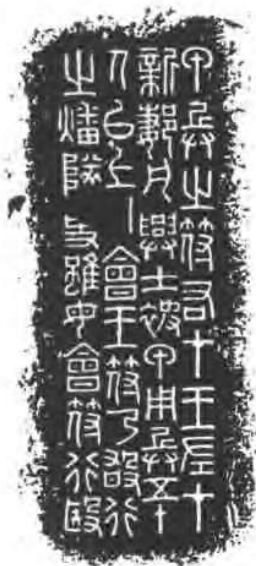 甲兵之符右才王左才
新郪凡興士被甲用兵五十
人㠯上必會王符乃敢行
之燔隊事雖毋會符行殹